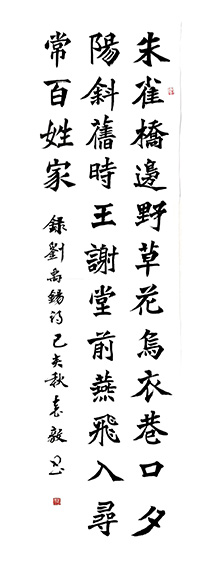 朱雀橋邊野草花烏衣巷口夕
陽斜舊時王謝堂前燕飛入尋
常百姓家
録劉禹錫诗己亥秋毅书